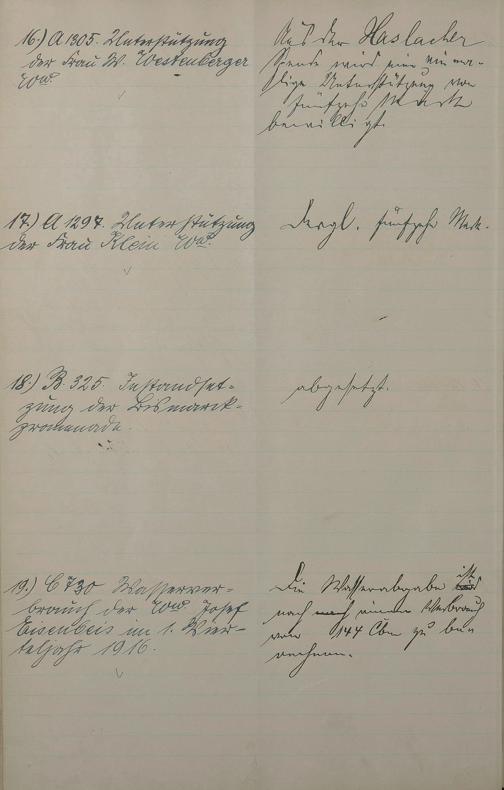 16.) A 1305. Unterstützung
der Frau W. Westenberger
Wwe.
Aus der Haslacher
Spende wird eine einma-
lige Unterstützung von
fünfzehn Mark
bewilligt.
17.) A 1297. Unterstützung
der Frau Klein Wwe.
Dergl. fünfzehn Mark.
18.) B. 325. Instandset-
zung der Bismarck-
promenade.
abgesetzt.
19.) C 730 Wasserver-
brauch der Wwe Josef
Eisenbeis im 1. Vier-
teljahr 1916.
Die Wasserabgabe ist
nach einem Verbrauch
von 144 Cbm zu be-
rechnen.